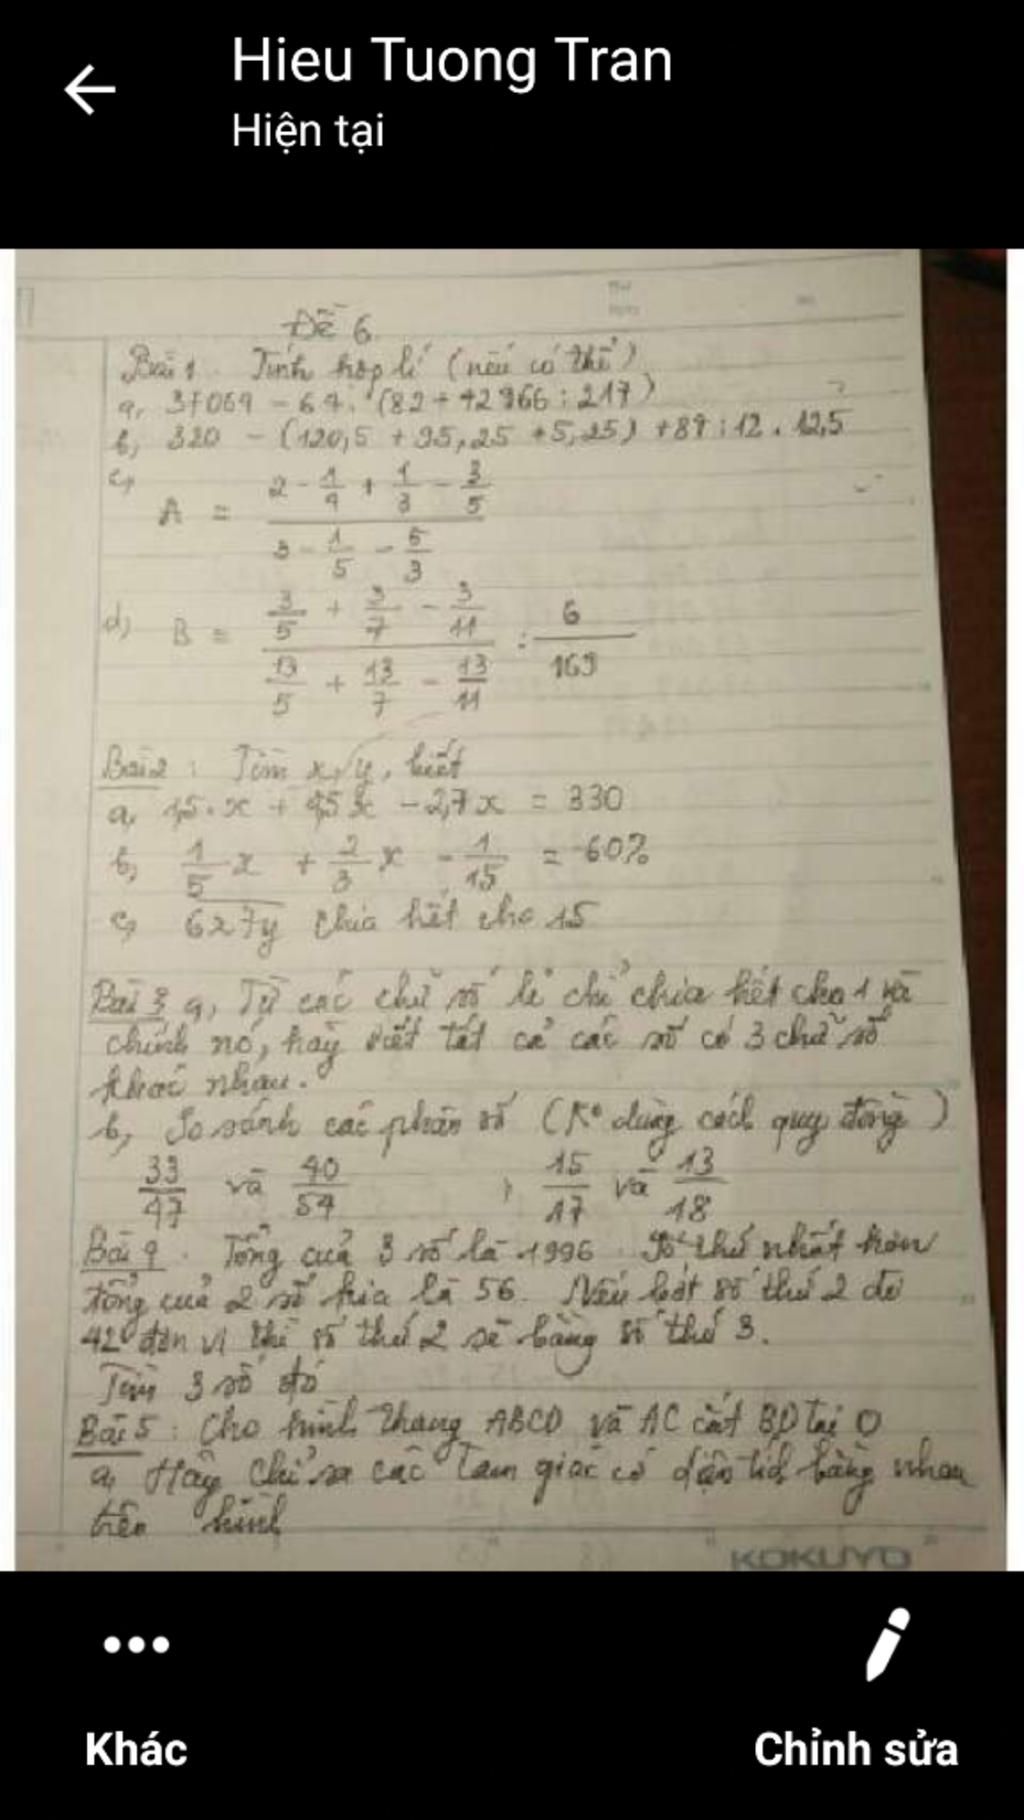 Hieu Tuong Tran
Hiện tại
Đề 6
Bài 1. Tính hợp lí (nếu có thể)
a, 37064 - 64. (82 + 42966 : 217)
b, 320 - (120,5 + 95,25 + 5,25) + 87 : 12 . 12,5
c,
A = (2 - 1/4 + 1/3 - 3/5) / (3 - 1/5 - 5/3)
d, B = (3/5 + 3/7 - 3/11) / (13/5 + 13/7 - 13/11) : 6/169
Bài 2 : Tìm x, y, biết
a, 1,5 . x + x - 2,7 x = 330
b, 1/5 x + 2/3 x - 1/15 = 60%
c, 6x7y chia hết cho 15
Bài 3 a, Từ các chữ số lẻ chỉ chia hết cho 1 và
chính nó, hãy viết tất cả các số có 3 chữ số
khác nhau.
b, So sánh các phân số (K° dùng cách quy đồng)
33/47 và 40/54 , 15/17 và 13/18
Bài 4. Tổng của 3 số là 1996 Số thứ nhất hơn
tổng của 2 số kia là 56. Nếu bớt số thứ 2 đi
42 đơn vị thì số thứ 2 sẽ bằng số thứ 3.
Tìm 3 số đó
Bài 5 : Cho hình thang ABCD và AC cắt BD tại O
a, Hãy chỉ ra các tam giác có diện tích bằng nhau
trên hình
KOKUYO
Khác
Chỉnh sửa